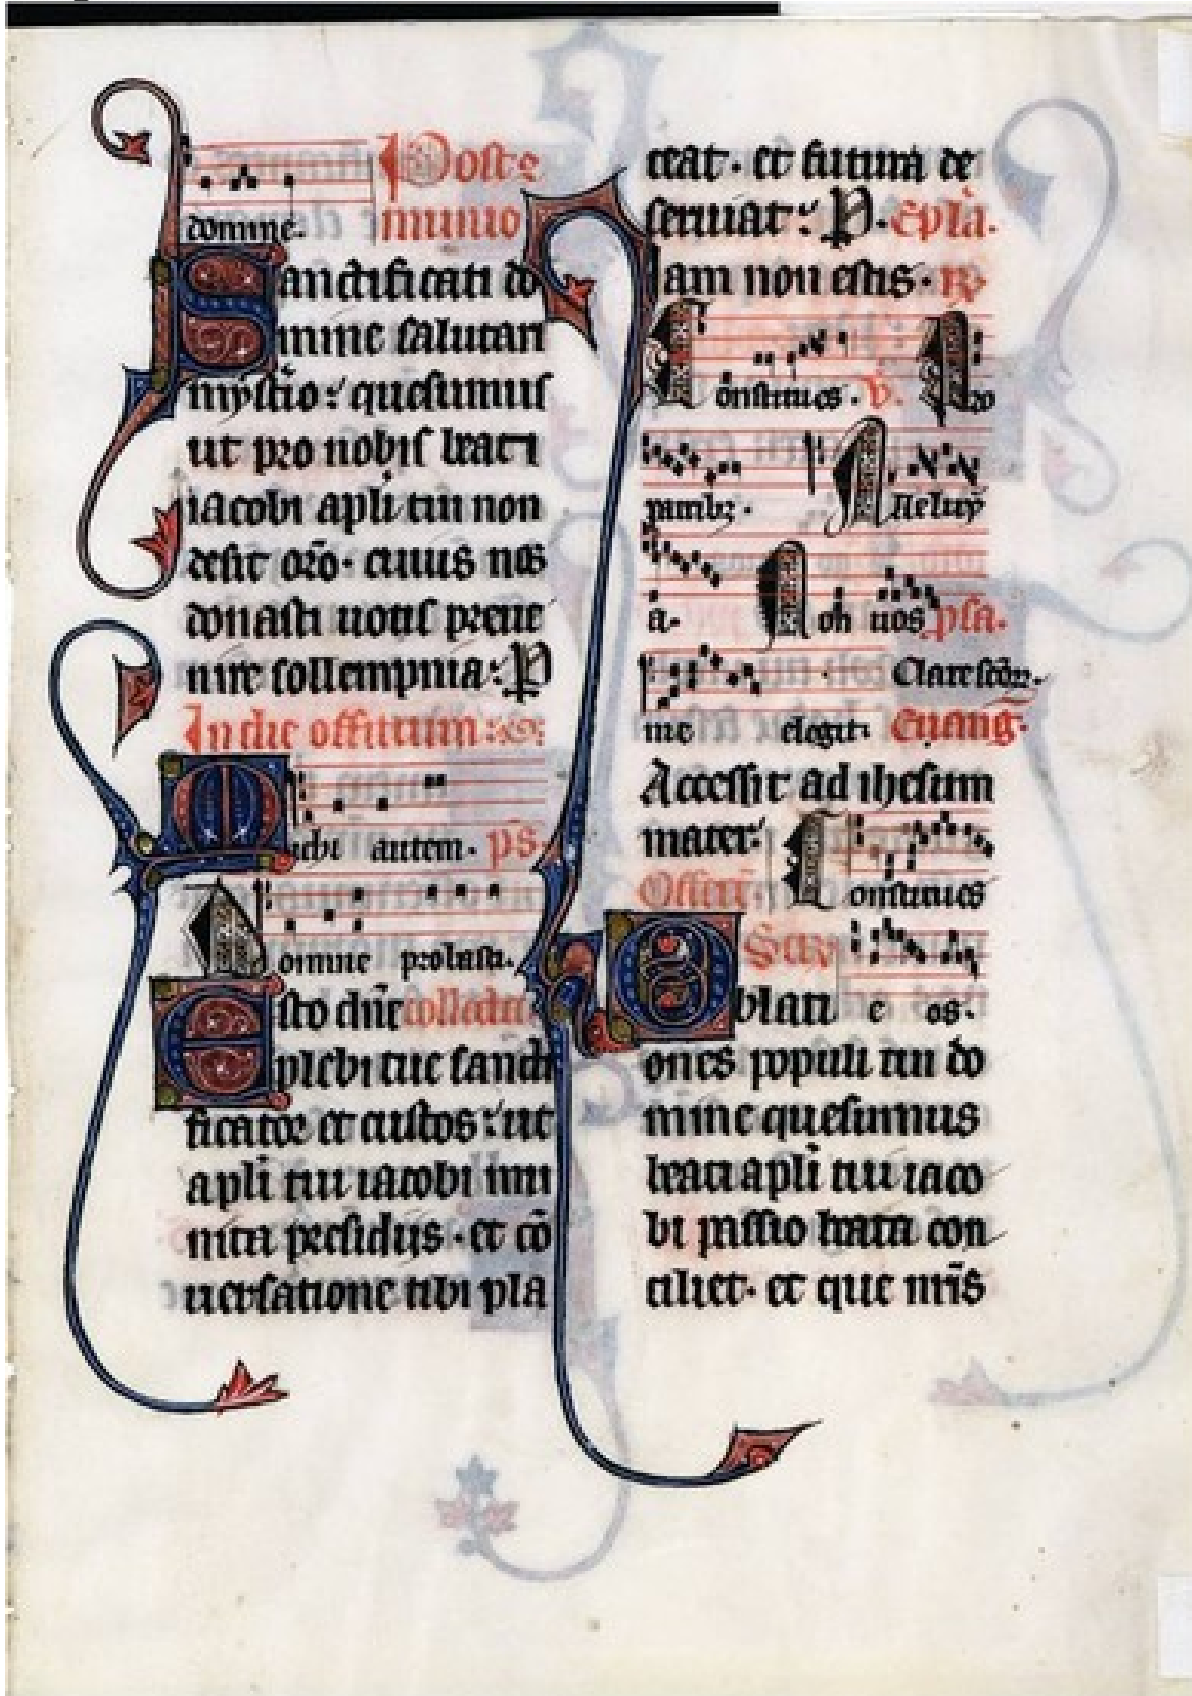 Postco
domine. munio
Sanctificati do
mine salutari
mysterio: quesumus
ut pro nobis beati
iacobi apli tui non
desit oro. cuius nos
donasti uotis preue
nire sollempnia: P
In die offitium:
Michi autem. ps.
Domine probasti.
Esto dne collecta
plebi tue sancti
ficator et custos: ut
apli tui iacobi mu
nita presidiis. et co
uersatione tibi pla
ceat. et futura de
seruiat: P. Epla.
Iam non estis. R
Constitues. V. Pro
patribz. Aeluy
a. Non uos psa.
me elegit. Clare scor.
Euang.
Accessit ad ihesum
mater. Constitues
Offert.
Secr
Oblati e os.
ones populi tui do
mine quesumus
beati apli tui iaco
bi passio beata con
ciliet. et que nris